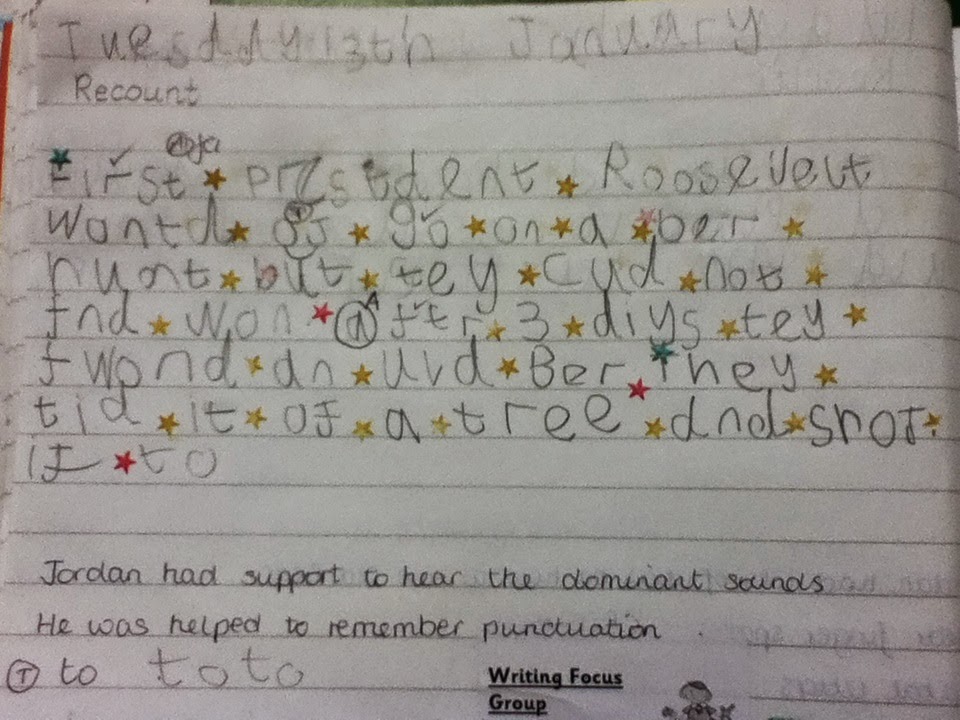 Tuesday 13th January
Recount
First president Roosevelt
wontd go on a ber
hunt but tey cud not
fnd won Aftr 3 diys tey
fwond an uld Ber. They
tid it of a tree and shot
it to
Jordan had support to hear the dominant sounds
He was helped to remember punctuation.
T to to to
Writing Focus
Group